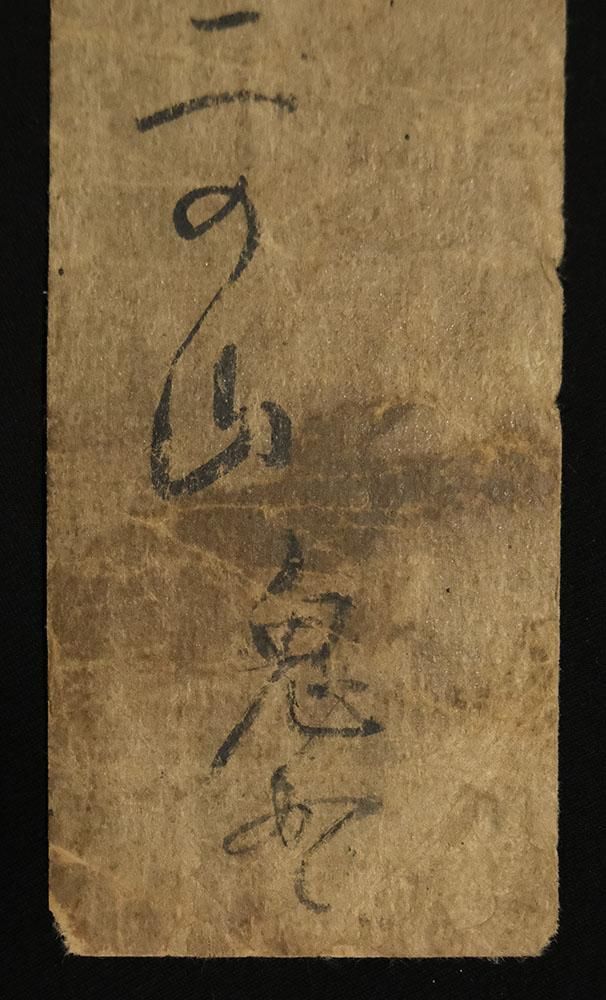 二の山
鬼